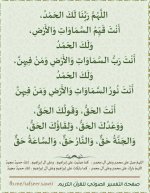 اللَّهُمَّ رَبَّنَا لَكَ الحَمْدُ،
أَنْتَ قَيِّمُ السَّمَاوَاتِ وَالأَرْضِ،
وَلَكَ الحَمْدُ
أَنْتَ رَبُّ السَّمَاوَاتِ وَالأَرْضِ وَمَنْ فِيهِنَّ،
وَلَكَ الحَمْدُ
أَنْتَ نُورُ السَّمَاوَاتِ وَالأَرْضِ وَمَنْ فِيهِنَّ،
أَنْتَ الحَقُّ، وَقَوْلُكَ الحَقُّ،
وَوَعْدُكَ الحَقُّ، وَلِقَاؤُكَ الحَقُّ،
وَالجَنَّةُ حَقٌّ، وَالنَّارُ حَقٌّ، وَالسَّاعَةُ حَقٌّ
صفحة التفسير الصوتي للقرآن الكريم